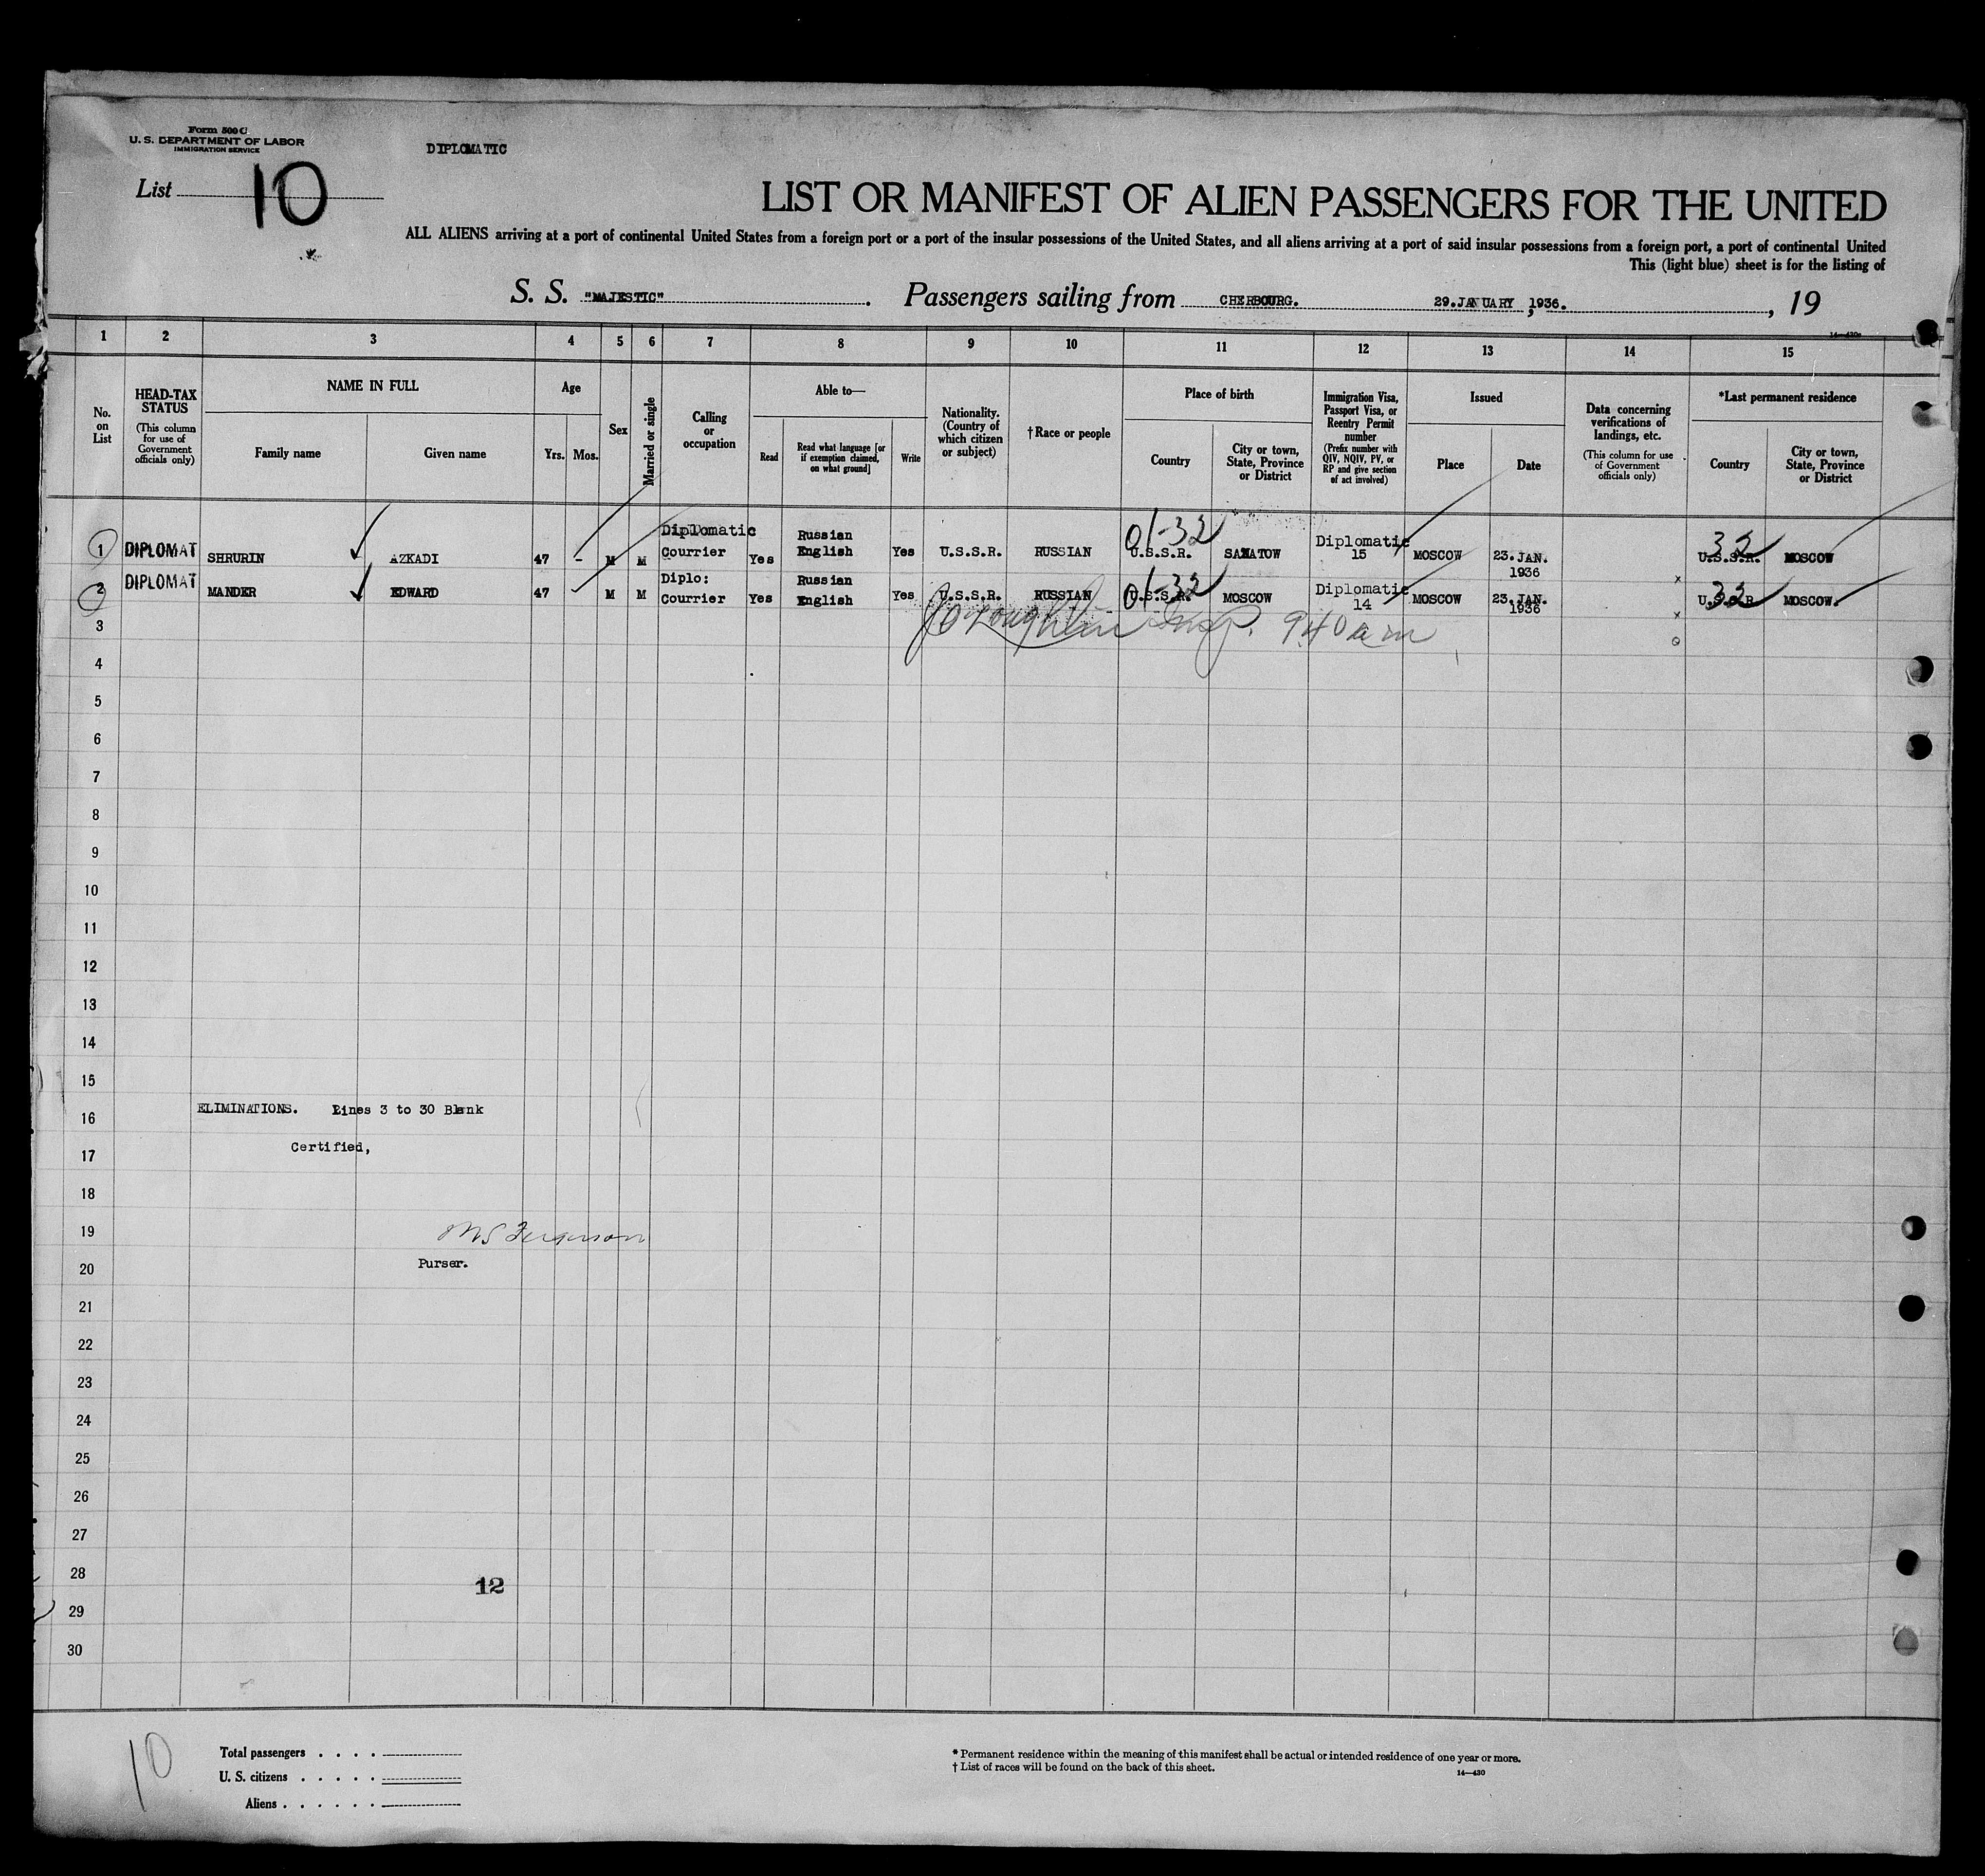 Form 500 C
U. S. DEPARTMENT OF LABOR
IMMIGRATION SERVICE
DIPLOMATIC
List 10
LIST OR MANIFEST OF ALIEN PASSENGERS FOR THE UNITED
ALL ALIENS arriving at a port of continental United States from a foreign port or a port of the insular possessions of the United States, and all aliens arriving at a port of said insular possessions from a foreign port, a port of continental United
This (light blue) sheet is for the listing of
S. S. "MAJESTIC". Passengers sailing from CHERBOURG. 29.JANUARY, 1936., 19
14—430a
1 2 3 4 5 6 7 8 9 10 11 12 13 14 15
No. on List
HEAD-TAX STATUS
(This column for use of Government officials only)
NAME IN FULL
Family name
Given name
Age
Yrs. Mos.
Sex
Married or single
Calling or occupation
Able to—
Read
Read what language [or if exemption claimed, on what ground]
Write
Nationality. (Country of which citizen or subject)
†Race or people
Place of birth
Country
City or town, State, Province or District
Immigration Visa, Passport Visa, or Reentry Permit number
(Prefix number with QIV, NQIV, PV, or RP and give section of act involved)
Issued
Place
Date
Data concerning verifications of landings, etc.
(This column for use of Government officials only)
*Last permanent residence
Country
City or town, State, Province or District
1 DIPLOMAT SHRURIN AZKADI 47 - M M Diplomatic Courrier Yes Russian English Yes U.S.S.R. RUSSIAN 01-32 U.S.S.R. Diplomatic 15 MOSCOW 23.JAN. 1936 32 U.S.S.R. MOSCOW
2 DIPLOMAT MANDER EDWARD 47 M M Diplo: Courrier Yes Russian English Yes U.S.S.R. RUSSIAN 01-32 U.S.S.R. MOSCOW Diplomatic 14 MOSCOW 23.JAN. 1936 x 32 U.S.S.R. MOSCOW.
3 Insp. 9.40 am x
4
5
6
7
8
9
10
11
12
13
14
15
16 ELIMINATIONS. Lines 3 to 30 Blank
17 Certified,
18
19 Ferguson
20 Purser.
21
22
23
24
25
26
27
28 12
29
30
10
Total passengers . . . .
U. S. citizens . . . . .
Aliens . . . . . .
* Permanent residence within the meaning of this manifest shall be actual or intended residence of one year or more.
† List of races will be found on the back of this sheet.
14—430